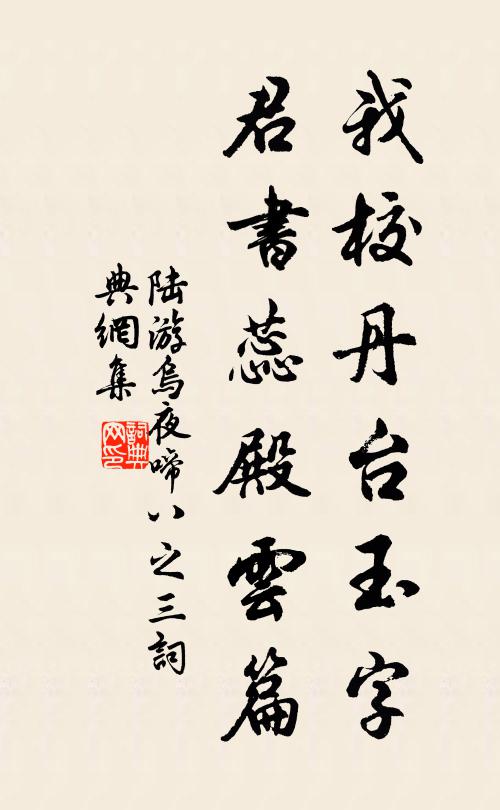 我校丹台玉字
君書蕊殿雲篇
陸游烏夜啼八之三詞
典網集
詞典網印